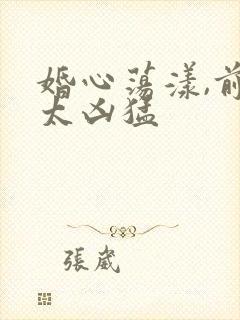 婚心荡漾,前
太凶猛
張崴